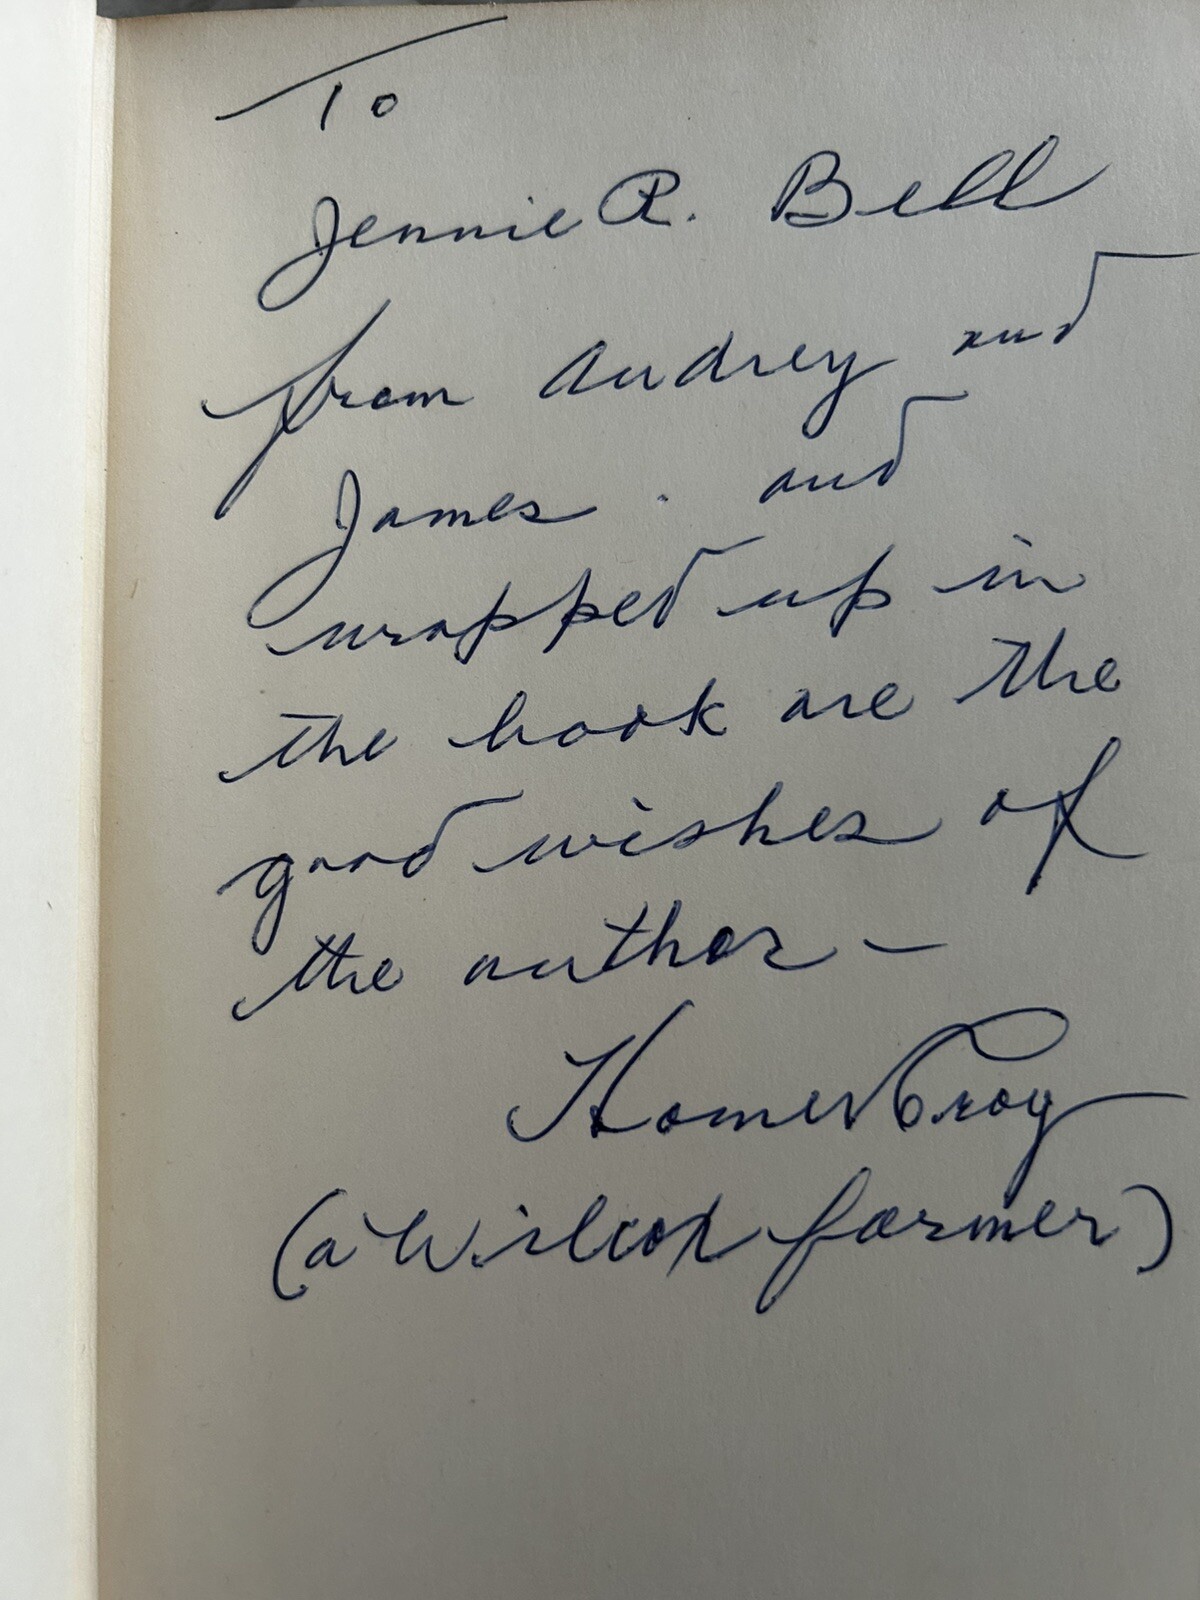 To
Jennie R. Bell
from Audrey and
James . and
wrapped up in
the book are the
good wishes of
the author –
Homer Croy
(a Wilcox farmer)